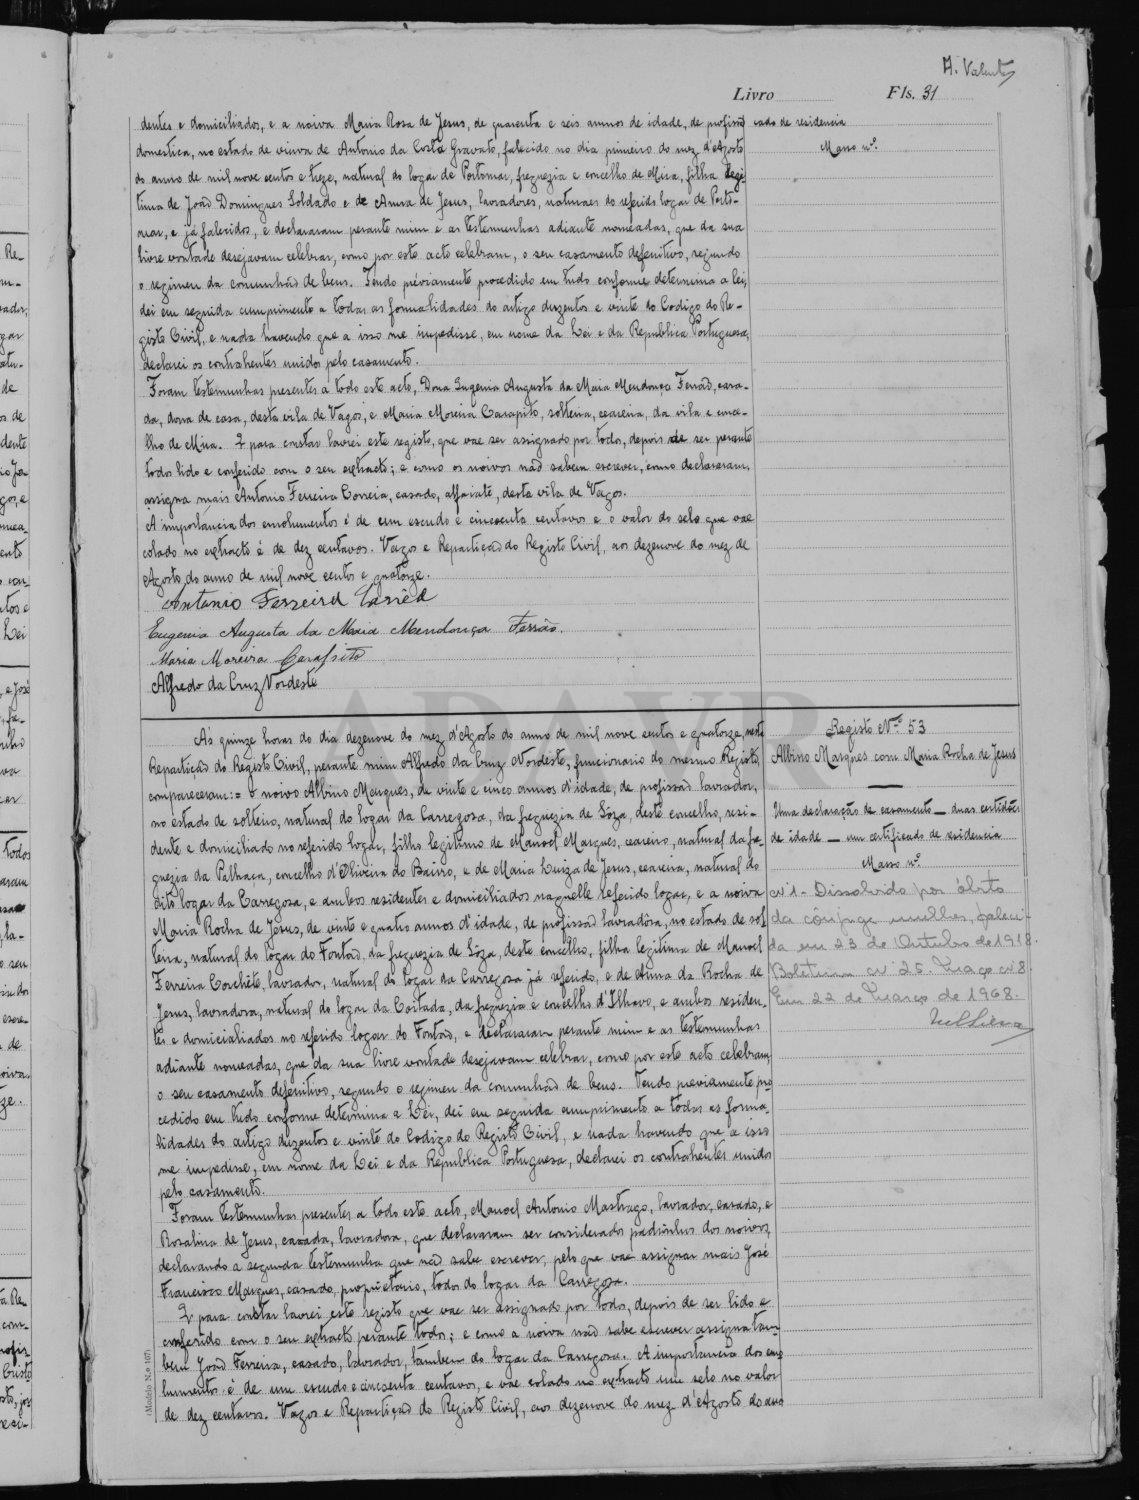 A. Valente
Livro Fls. 31
dentes e domiciliados, e a noiva Maria Rosa de Jesus, de quarenta e seis annos de idade, de profissão
domestica, no estado de viuva de Antonio da Costa Gravato, falecido no dia primeiro do mez d'Agosto
do anno de mil nove centos e treze, natural do logar de Portomar, freguezia e concelho de Mira, filha legi-
tima de João Domingues Soldado e de Anna de Jesus, lavradores, naturaes do referido logar de Porto-
mar, e já falecidos, e declararam perante mim e as testemunhas adiante nomeadas, que da sua
livre vontade desejavam celebrar, como por este acto celebram, o seu casamento definitivo, segundo
o regimen da comunhão de bens. Tendo préviamente procedido em tudo conforme determina a lei,
dei em seguida cumprimento a todas as formalidades do artigo duzentos e vinte do Codigo do Re-
gisto Civil, e nada havendo que a isso me impedisse, em nome da Lei e da Republica Portuguesa,
declarei os contrahentes unidos pelo casamento.
Foram testemunhas presentes a todo este acto, Dona Eugenia Augusta da Maia Mendonça Ferrão, casa-
da, dona de casa, desta vila de Vagos, e Maria Moreira Carapito, solteira, ceareira, da vila e conce-
lho de Mira. E para constar lavrei este registo, que vae ser assignado por todos, depois de ser perante
todos lido e conferido com o seu extracto; e como os noivos não sabem escrever, como declararam,
assigna mais Antonio Ferreira Correia, casado, alfaiate, desta vila de Vagos.
A importancia dos emolumentos é de um escudo e cincoenta centavos e o valor do selo que vae
colado no extracto é de dez centavos. Vagos e Repartição do Registo Civil, aos dezenove do mez de
Agosto do anno de mil nove centos e quatorze.
Antonio Ferreira Corrêa
Eugenia Augusta da Maia Mendonça Ferrão.
Maria Moreira Carapito
Alfredo da Cruz Nordeste
cado de residencia
Masso nº.
ADAVR
Ás quinze horas do dia dezenove do mez d'Agosto do anno de mil nove centos e quatorze, nesta
Repartição do Registo Civil, perante mim Alfredo da Cruz Nordeste, funcionario do mesmo Registo,
compareceram:= O noivo Albino Marques, de vinte e cinco annos d'idade, de profissão lavrador,
no estado de solteiro, natural do logar da Carregosa, da freguezia de Sôza, deste concelho, resi-
dente e domiciliado no referido logar, filho legitimo de Manoel Marques, ceareiro, natural da fre-
guezia da Palhaça, concelho d'Oliveira do Bairro, e de Maria Luiza de Jesus, ceareira, natural do
dito logar da Carregosa, e ambos residentes e domiciliados naquelle referido logar, e a noiva
Maria Rocha de Jesus, de vinte e quatro annos d'idade, de profissão lavradôra, no estado de sol
teira, natural do logar do Fontão, da freguezia de Sôza, deste concelho, filha legitima de Manoel
Ferreira Corchête, lavrador, natural do logar da Carregosa já referido, e de Anna da Rocha de
Jesus, lavradora, natural do logar da Coutada, da freguezia e concelho d'Ilhavo, e ambos residen-
tes e domiciliados no referido logar do Fontão, e declararam perante mim e as testemunhas
adiante nomeadas, que da sua livre vontade desejavam celebrar, como por este acto celebram,
o seu casamento definitivo, segundo o regimen da comunhão de bens. Tendo previamente pro
cedido em tudo conforme determina a Lei, dei em seguida cumprimento a todas as forma-
lidades do artigo duzentos e vinte do Codigo do Registo Civil, e nada havendo que a isso
me impedisse, em nome da Lei e da Republica Portuguesa, declarei os contrahentes unidos
pelo casamento.
Foram testemunhas presentes a todo este acto, Manoel Antonio Mastrago, lavrador, casado, e
Rosalina de Jesus, casada, lavradora, que declararam ser considerados padrinhos dos noivos,
declarando a segunda testemunha que não sabe escrever, pelo que vae assignar mais José
Francisco Marques, casado, proprietario, todos do logar da Carregosa.
E para constar lavrei este registo que vae ser assignado por todos, depois de ser lido e
conferido com o seu extracto perante todos; e como a noiva não sabe escrever assigna tam-
bem João Ferreira, casado, lavrador, tambem do logar da Carregosa. A importancia dos emo
lumentos é de um escudo e cincoenta centavos, e vae colado no extracto um selo no valor
de dez centavos. Vagos e Repartição do Registo Civil, aos dezenove do mez d'Agosto do anno
Registo Nº 53
Albino Marques com Maria Rocha de Jesus
Uma declaração de casamento — duas certidões
de idade — um certificado de residencia
Masso nº
nº 1 - Dissolvido por óbito
da cônjuge mulher, faleci-
da em 23 de Outubro de 1918.
Boletim nº 25. Maço nº 8.
Em 22 de Março de 1968.
(Modelo N.º 107)